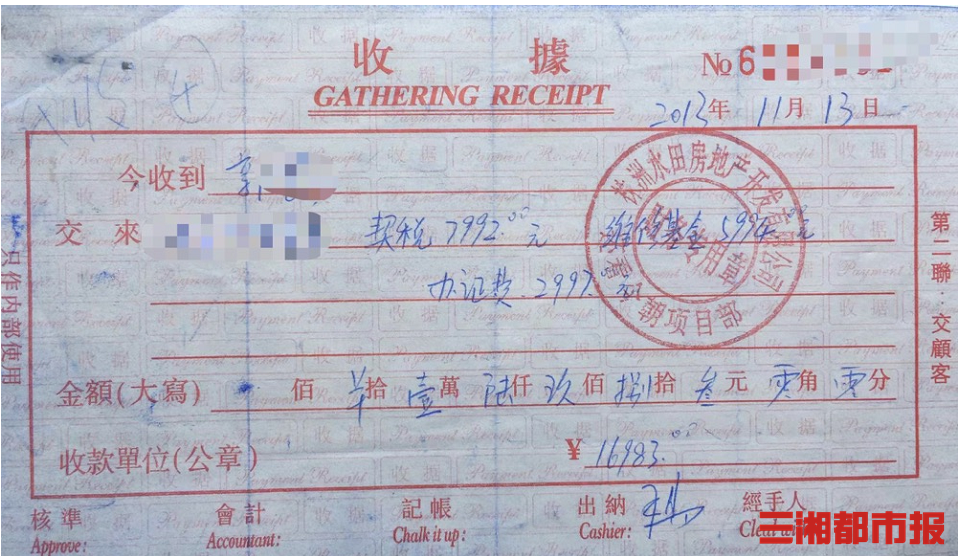 收 據
№6
GATHERING RECEIPT
2013年 11月 13日
今收到
交 來 契税7992.00元 维修基金5994.00元
办证费.2997.00元
金額(大寫) 佰 拾 壹萬 陆仟 玖佰 捌拾 叁元 零角 零分
收款單位(公章) ¥16983.00
核準 會計 記帳 出納 經手人
Approve: Accountant: Chalk it up: Cashier:
只作内部使用
第二聯:交顧客
株洲水田房地产开发有限公司
专用章
朝项目部
三湘都市报